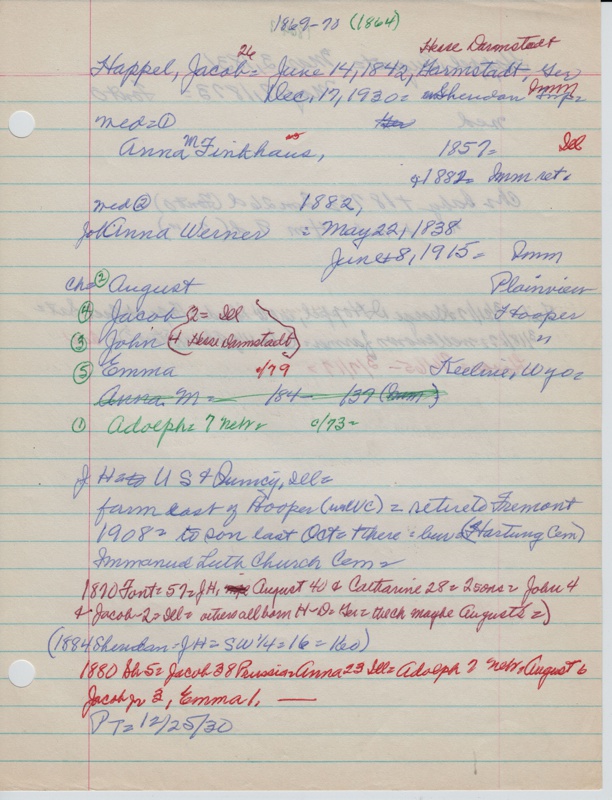 1869-70 (1864)
Hesse Darmstadt
Happel, Jacob = 26 June 14, 1842, Harmstadt, Ger
Dec, 17, 1930 = Sheridan Twp = Imm
med = ①
Anna M Finkhaus, 1857 = Ill
+ 1882 = Imm ret =
med ② 1882,
Joh Anna Werner = May 22, 1838
June 8, 1915 = Imm
ch = ② August Plainview
④ Jacob 2 = Ill Hooper
③ John 4 (Hesse Darmstadt) "
⑤ Emma c/79 Keeline, Wyo =
Anna M = 184 - 139 (Imm)
① Adolph = 7 Nebr = c/73 =
J. H to U S + Quincy, Ill =
farm east of Hooper (wUC) = retired Fremont
1908 = to son last Oct = + there = bur (Hartung Cem)
Immanuel Luth Church Cem =
1870 Font = 57 = J H, August 40 & Catharine 28 = 2 sons = John 4
& Jacob - 2 = Ill = others all born H-D = Ger = check maybe Augusts =)
(1884 Sheridan - J H = SW 1/4 = 16 = 160)
1880 Sh = 5 = Jacob 38 Prussia = Anna 23 Ill = Adolph 7 Nebr, August 6
Jacob Jr 3, Emma 1, —
P T = 12/25/30